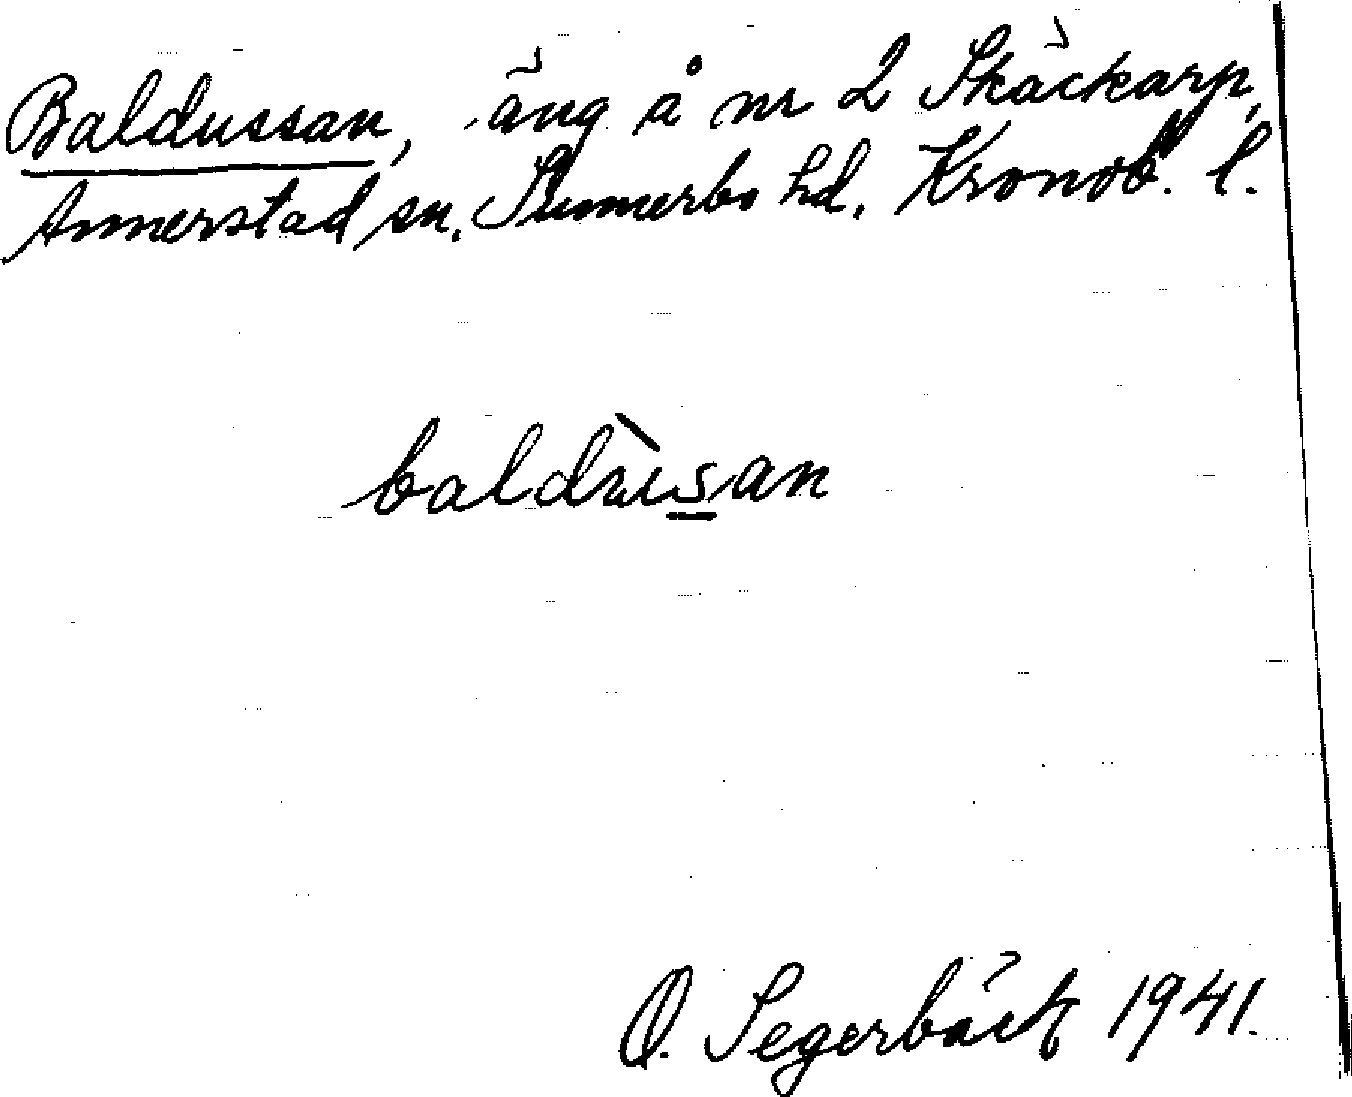 Baldussan, äng å nr 2 Skäckarp,
Annerstad sn. Sunnerbo hd. Kronob. l.
baldùsan
O. Segerbäck 1941.